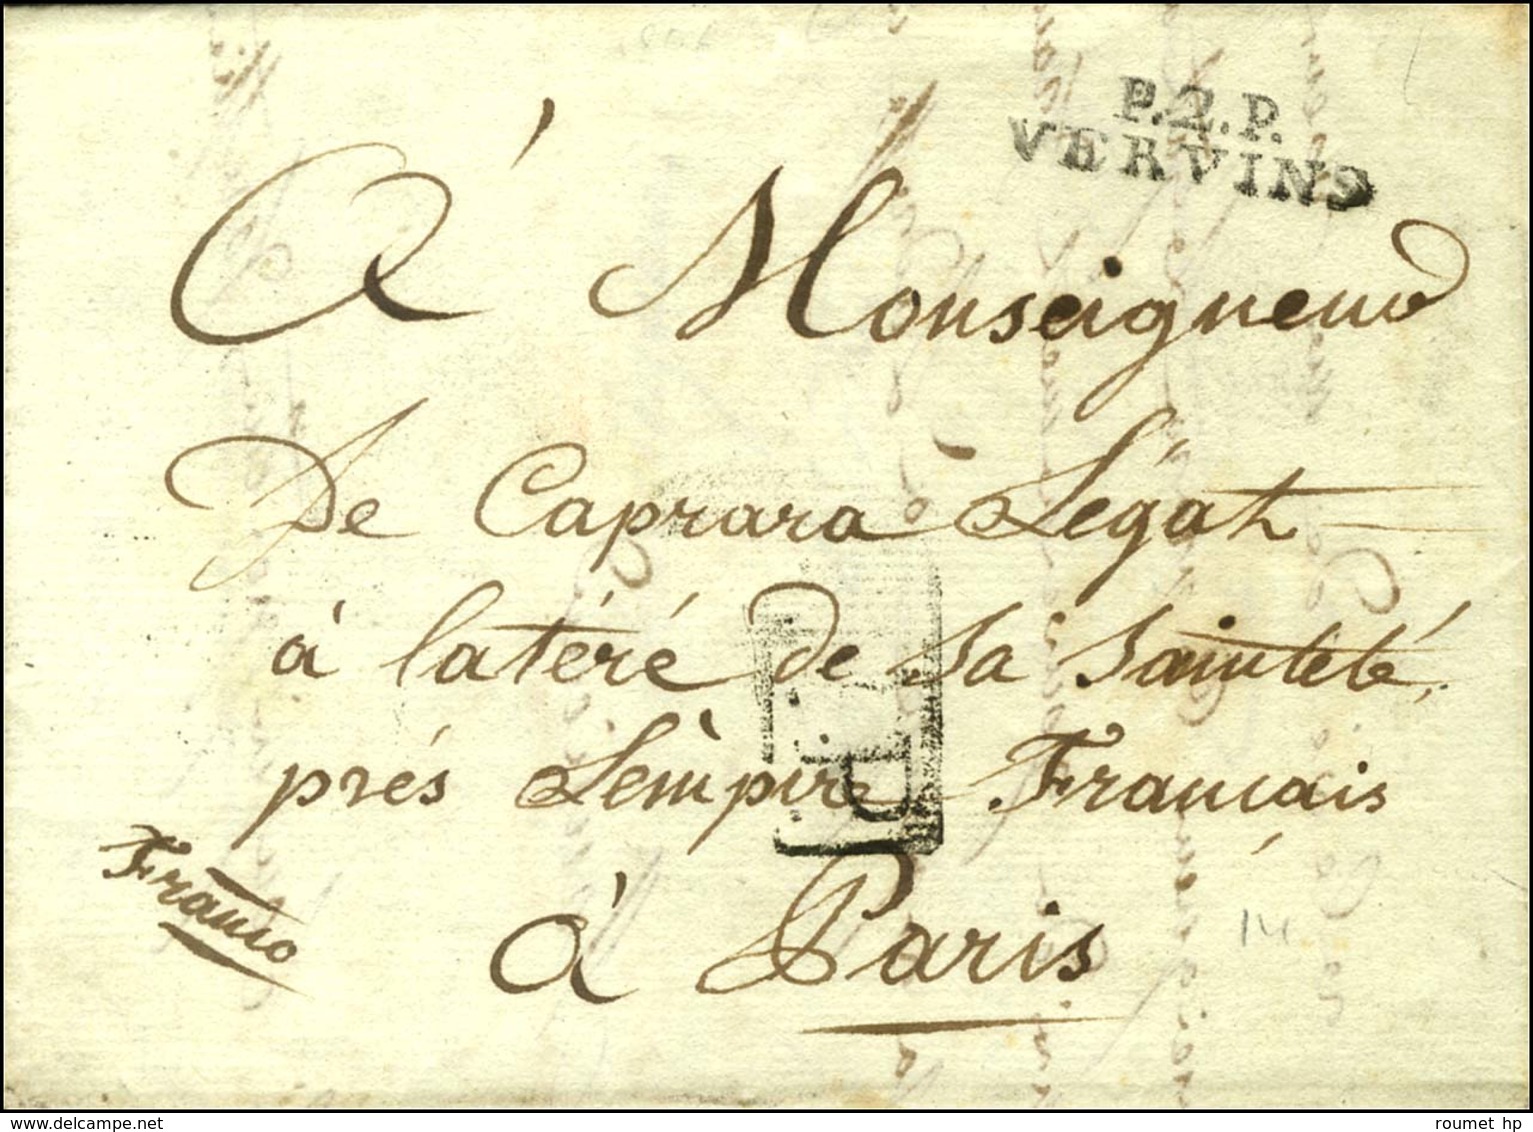 P.2.P.
VERVINS
À Monseigneur
De Caprara Légat
à latéré de sa Sainteté,
prés Lèmpire Français
P.P.
Franco
à Paris
14
delcampe.net
roumet hp